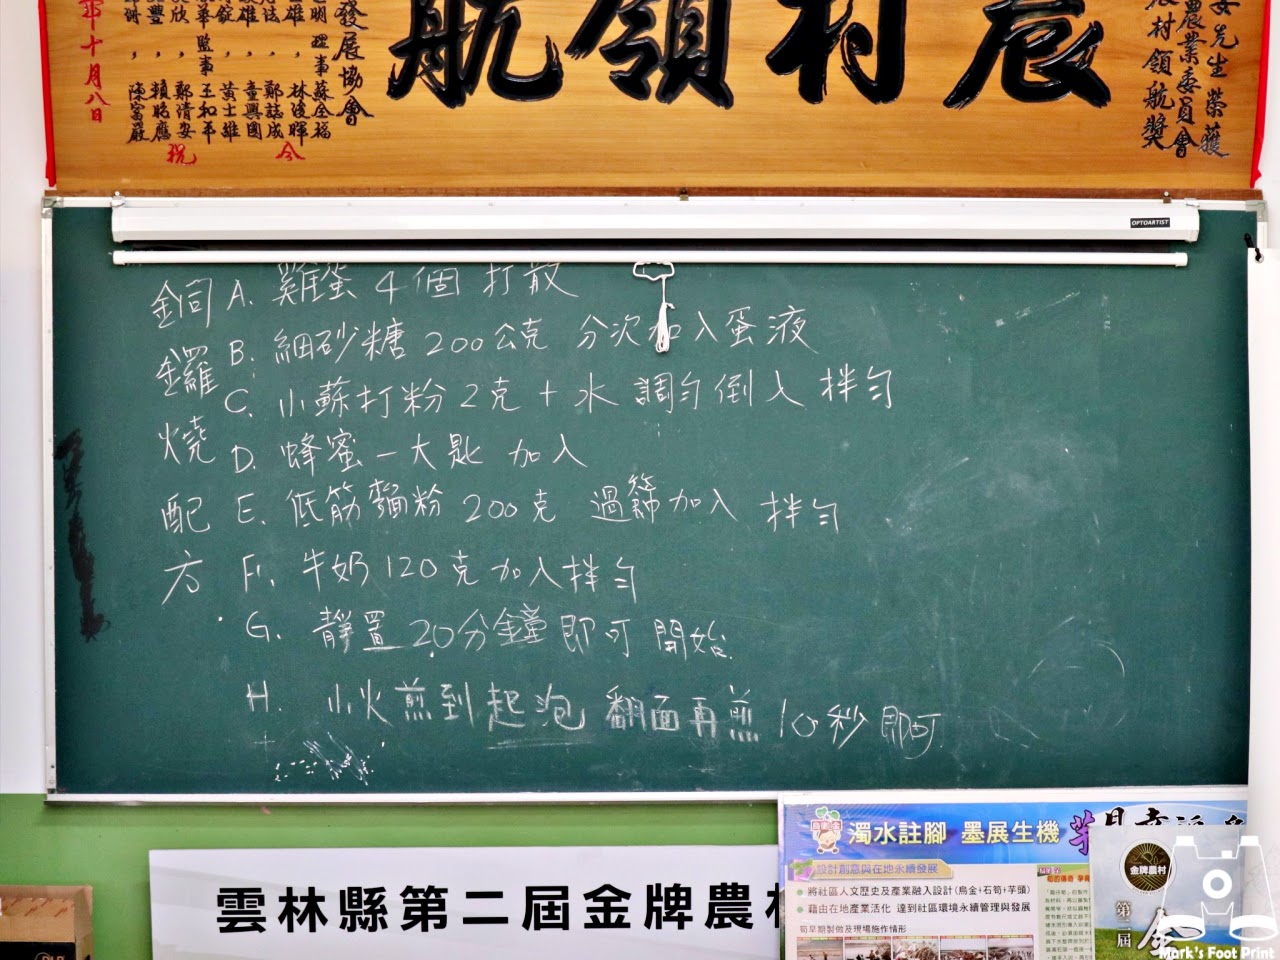 農村領航
安先生 榮獲
農業委員會
農村領航獎
發展協會
理事
蘇全福
林後暉
鄭誌成
童興國
黃士雄
監事
王和平
鄭清安
賴昭應
年十月八日
仝
祝
OPTOARTIST
銅鑼燒配方
A. 雞蛋4個 打散
B. 細砂糖 200公克 分次加入蛋液
C. 小蘇打粉2克+水 調勻倒入 拌勻
D. 蜂蜜一大匙 加入
E. 低筋麵粉 200克 過篩加入 拌勻
F. 牛奶120克加入拌勻
G. 靜置20分鐘即可開始
H. 小火煎到起泡 翻面再煎10秒即可
雲林縣第二屆金牌農
濁水註腳 墨展生機
設計創意與在地永續發展
將社區人文歷史及產業融入設計(烏金+石筍+芋頭)
藉由在地產業活化 達到社區環境永續管理與發展
筍早期製做及現場施作情形
金牌農村
第二屆
金
Mark's Foot Print